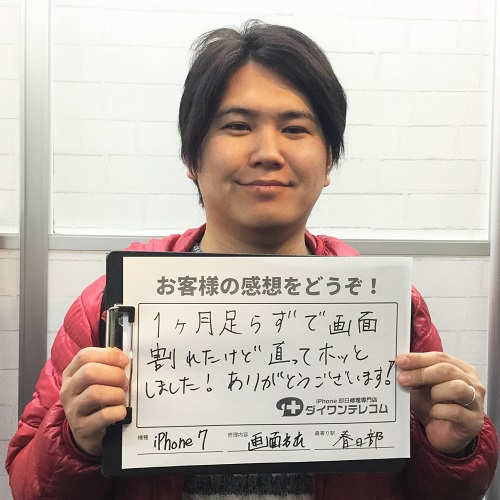 お客様の感想をどうぞ！
1ヶ月足らずで画面
割れたけど直ってホッと
しました! ありがとうございます!
iPhone 即日修理専門店
ダイワンテレコム
機種 iPhone7 修理内容 画面割れ 最寄り駅 春日部